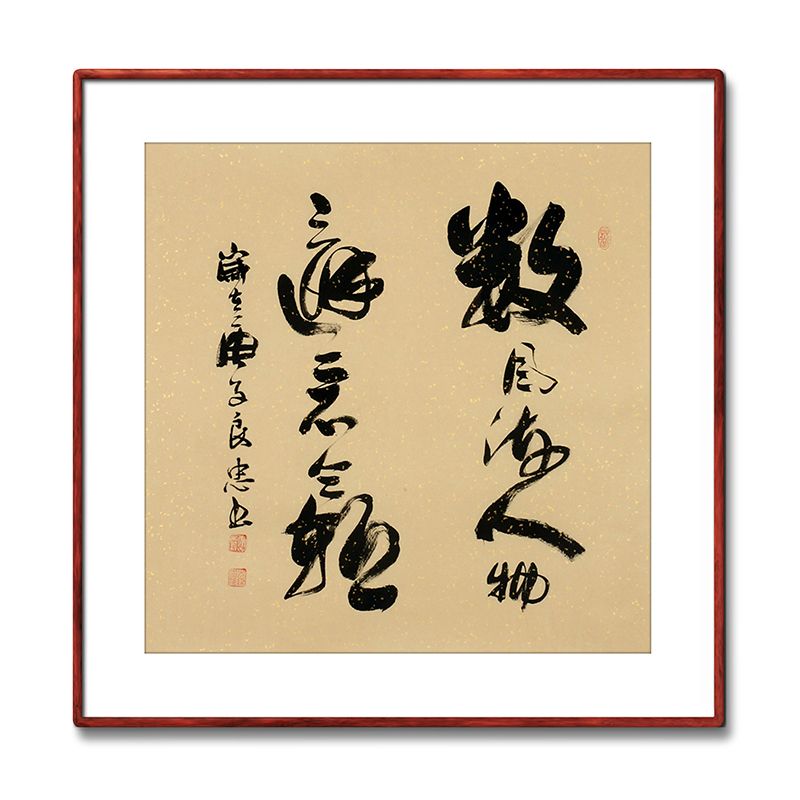 数风流人物
还看今朝
岁在庚子良忠书